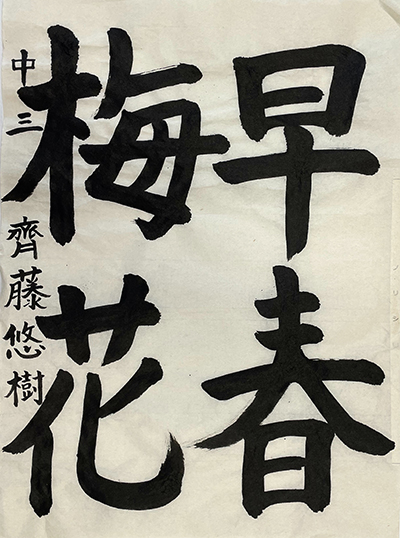 早春
梅花
中三 齊藤悠樹